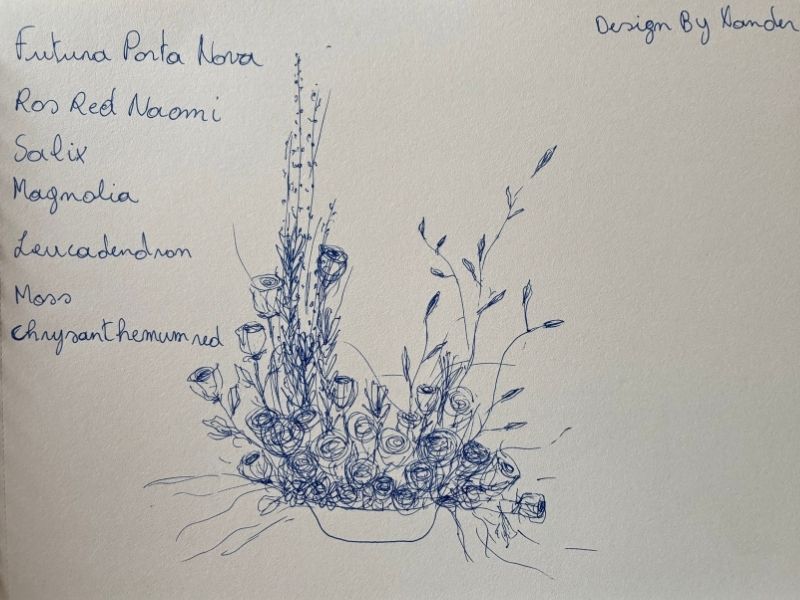 Design By Xander
Futura Porta Nova
Ros Red Naomi
Salix
Magnolia
Leucadendron
Moss
chrysanthemum red